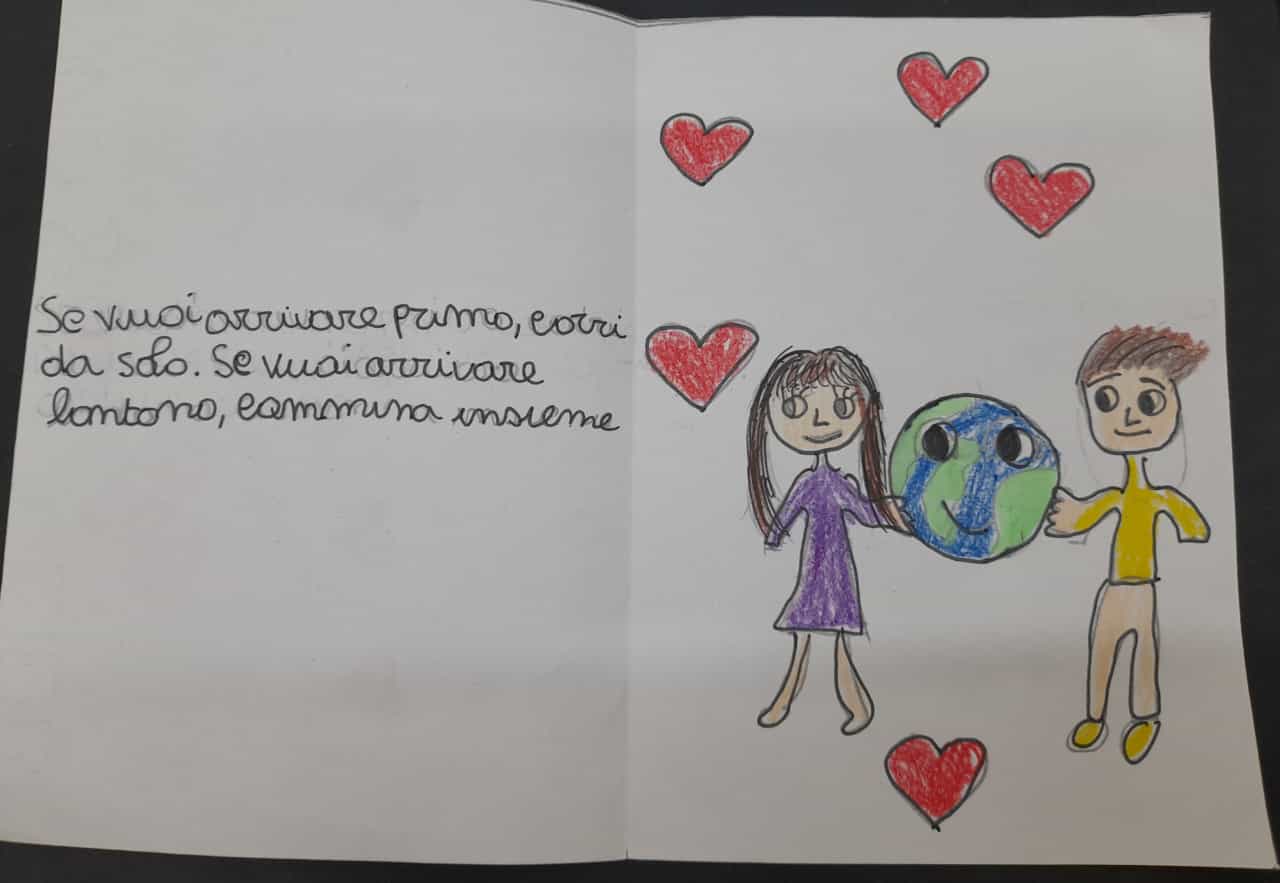 Se vuoi arrivare primo, corri
da solo. Se vuoi arrivare
lontano, cammina insieme